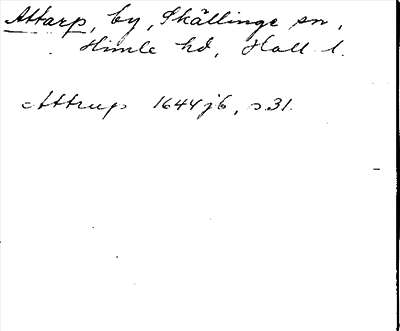 Attarp, by, Skällinge sn,
Himle hd, Hall. l.
Attrup 1644 jb, s. 31.